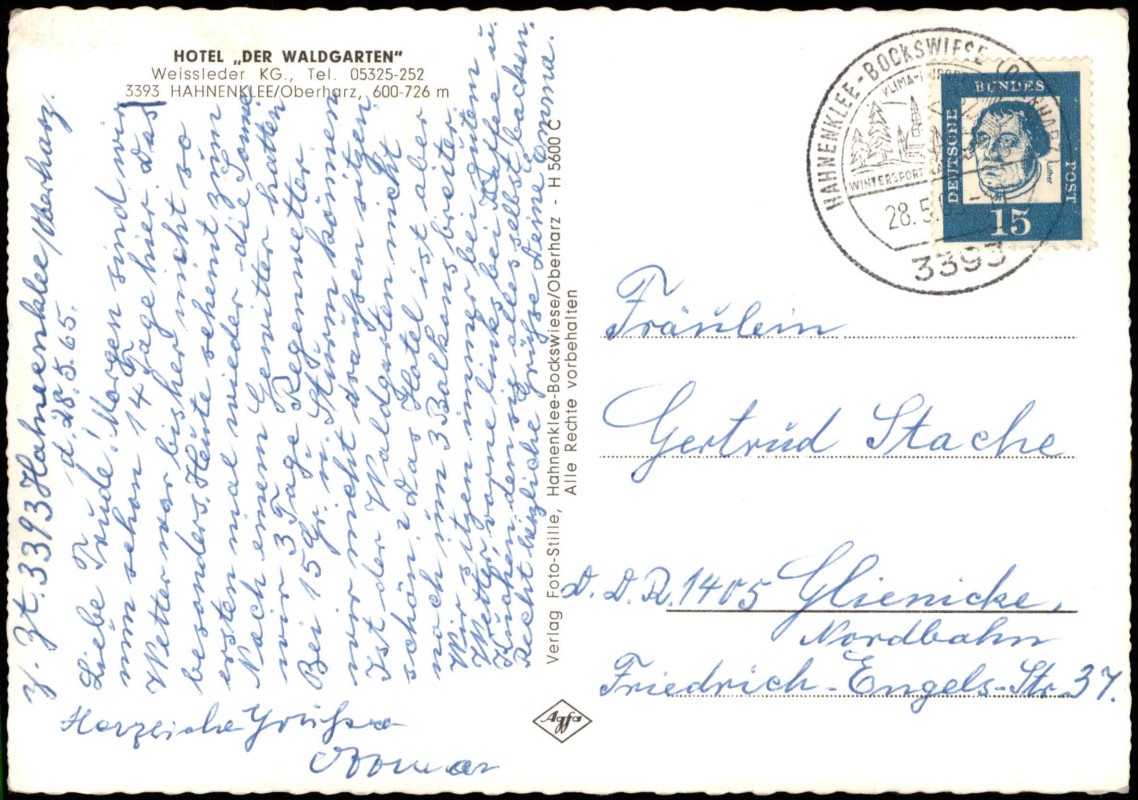 HOTEL „DER WALDGARTEN"
Weissleder KG., Tel. 05325-252
3393 HAHNENKLEE/Oberharz, 600-726 m
z. Zt. 3393 Hahnenklee/Oberharz.
d. 28.5.65.
Liebe Trude! Morgen sind wir
nun schon 14 Tage hier. Das
Wetter war bisher nicht so
besonders. Heute scheint zum
ersten mal wieder die Sonne
Nach einem Gewitter hatten
wir 3 Tage Regenwetter
Bei 15 Gr. u. Sturm können
wir nicht draußen sitzen
Ist der Waldgarten nicht
schön? Das Hotel ist aber
noch um 3 Balkons breiter.
Wir sitzen immer bei gutem
Wetter, vorne links bei Kaffee u.
Kuchen, den sie alles selbst backen.
Recht herzliche Grüße Deine Emma.
Herzliche Grüße
Verlag Foto-Stille, Hahnenklee-Bockswiese/Oberharz - H 5600 C
Alle Rechte vorbehalten
Agfa
HAHNENKLEE-BOCKSWIESE (OBERHARZ)
WINTERSPORT
28.5.
3393
DEUTSCHE BUNDES POST
Luther
15
Fräulein
Gertrud Stache
D. D. R. 1405 Glienicke,
Nordbahn
Friedrich-Engels-Str. 37.